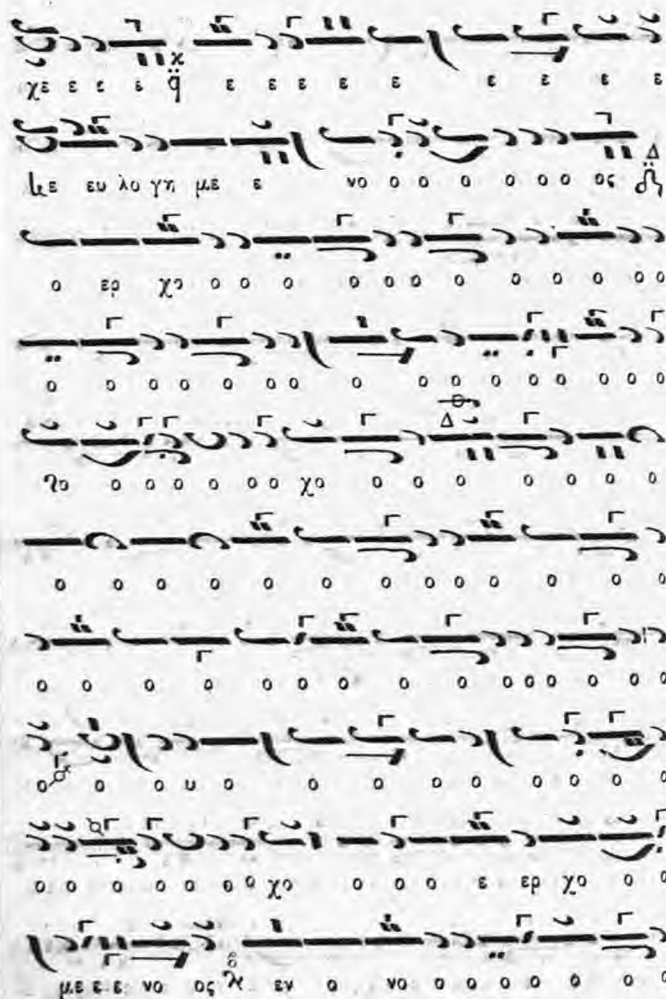 χε ε ε ε ε ε ε ε ε ε ε ε ε
χε ευ λο γη με ε νο ο ο ο ο ο ο ος
ο ερ χο ο ο ο ο ο ο ο ο ο ο ο ο
ο ο ο ο ο ο ο ο ο ο ο ο ο ο ο ο
λο ο ο ο ο ο ο ο χο ο ο ο ο ο ο ο
ο ο ο ο ο ο ο ο ο ο ο ο ο
ο ο ο ο ο ο ο ο ο ο ο ο ο ο
ο ο υ ο ο ο ο ο ο ο ο ο
ο ο ο ο ο ο ο ο χο ο ο ο ε ερ χο ο ο
με ε ε νο ος εν ο νο ο ο ο ο ο ο ο